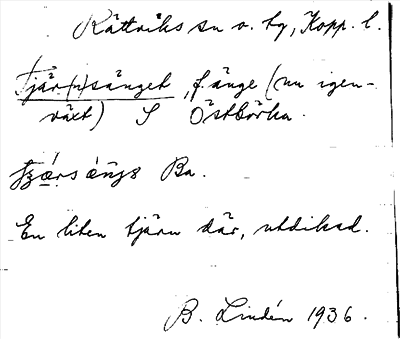 Rättviks sn o. by, Kopp. l.
Tjär(n)sänget, f. änge (nu igen-
växt) S Östbörka.
Ba.
En liten tjärn där, utdikad.
B. Lindén 1936.